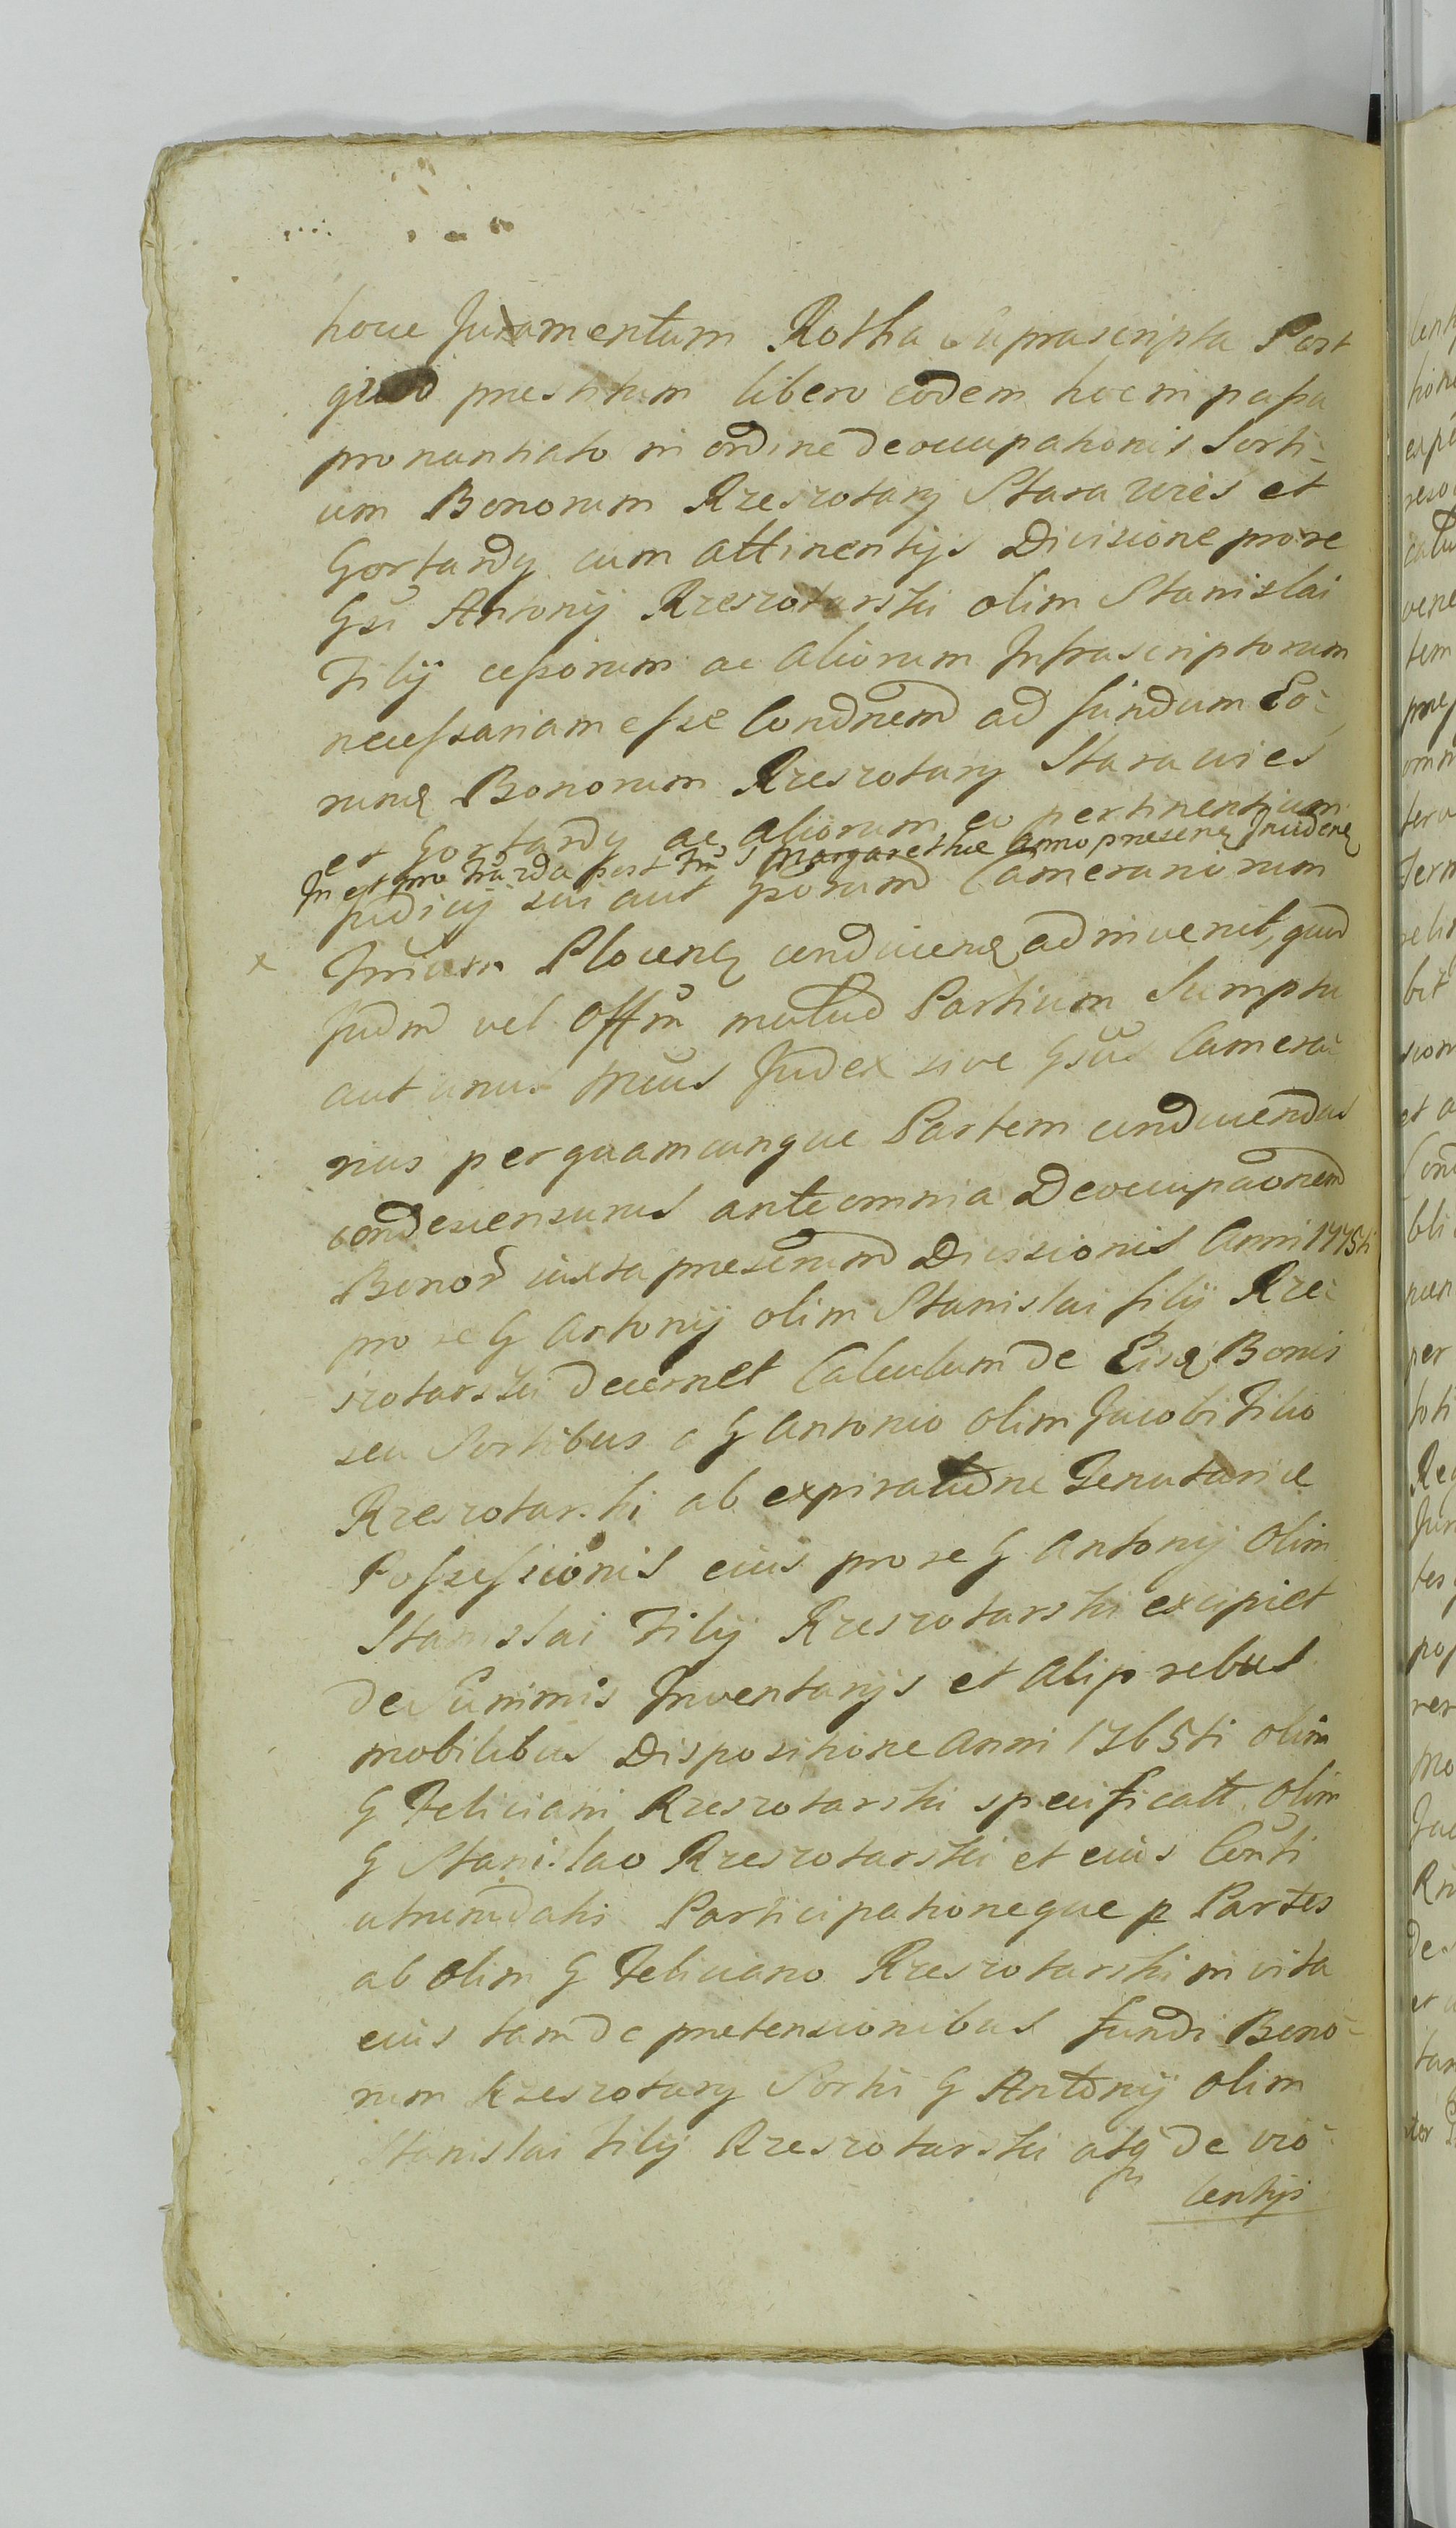 hocce Juramentum Rotha Suprascripta Post
quod praestitum libero eodem hoc in passu
pronuntiato in ordine deoccupationis Sorti-
um Bonorum Rzeszotary Stara wies et
Gortardy cum attinentijs Divisione pro re
Gsi Antonij Rzeszotarski olim Stanislai
Filij cessorum ac aliorum Infrascriptorum
necessariam esse Condnem ad fundum Eo-
rumq Bonorum Rzeszotary Stara wies
et Gortardy ac aliorum eo pertinentium
In et pro Fria 2da post Fm S Margarethae Anno praesenq Incidenq
Judicij sui aut Gsorum Camerariorum
x Trium Plocenq conducenq adinvenit, quod
Judm vel Offm mutuo Partium Sumptu
aut unus mius Judex sive Gsus Camera-
rius per quamcunque Partem conducendus
condescensurus ante omnia Deoccupaonem
Bonor iuxta Divisionis Anni 1775ti
pro re G Antonij olim Stanislai filij Rze-
szotarski decernet Calculum de Eisq Bonis
seu Sortibus a G Antonio olim Jacobi Filio
Rzeszotarski ab expiratione Tenutariae
Possessionis eius pro re G Antonij olim
Stanislai Filij Rzeszotarski excipiet
de Summis Inventarijs et alijs rebus
mobilibus Dispositione Anni 1765ti olim
G Feliciani Rzeszotarski specificatt olim
G Stanislao Rzeszotarski et eius Conti
Participationeque p Partes
ab olim G Feliciano Rzeszotarski in vita
eius tam de praetensionibus fundi Bono-
rum Rzeszotary Sorti G Antonij olim
Stanislai Filij Rzeszotarski atq de vio-
lentijs